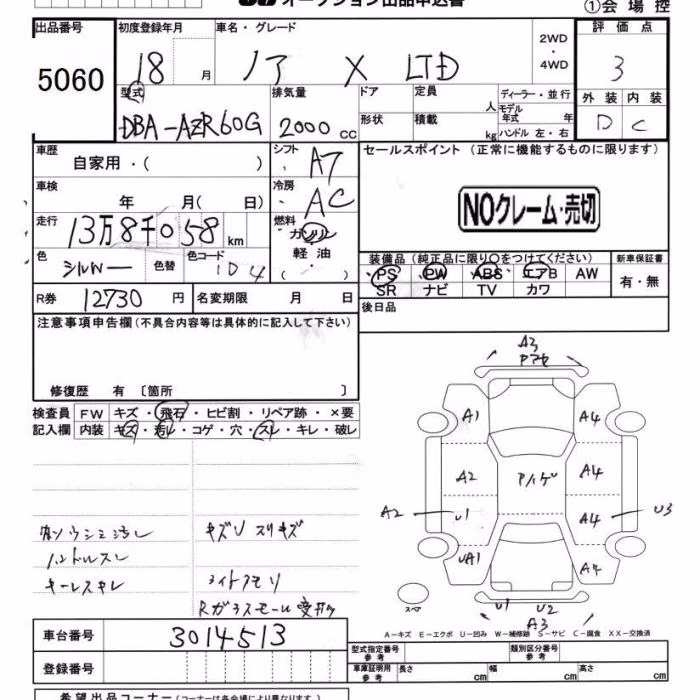 オークション出品申込書
①会場控
出品番号
5060
初度登録年月
18 月
車名・グレード
ノア X LTD
2WD
・
4WD
評価点
3
外装 内装
D C
型式
DBA-AZR60G
排気量
2000 cc
ドア
形状
定員 人
積載 kg
ディーラー・並行
モデル
年式 年
ハンドル 左・右
車歴
自家用・( )
シフト
A7
セールスポイント (正常に機能するものに限ります)
NOクレーム・売切
車検
年 月( 日)
冷房
AC
走行
13万8千058 km
燃料
ガソリン
軽油
・
( )
色
シルバー
色替
色コード
1D4
装備品 (純正品に限り○をつけてください)
PS PW ABS エアB AW
SR ナビ TV カワ
新車保証書
有・無
R券 12730 円
名変期限 月 日
後日品
注意事項申告欄(不具合内容等は具体的に記入して下さい)
修復歴 有 〔箇所 〕
検査員
記入欄
FW キズ・飛石・ヒビ割・リペア跡・×要
内装 キズ・汚レ・コゲ・穴・スレ・キレ・破レ
ハンドルスレ
キーレスキレ
キズU スリキズ
A3
A1
A4
A2
A4
A2
U1
A4
U3
UA1
A4
スペア
U1 U2
A3
A−キズ E−エクボ U−凹み W−補修跡 S−サビ C−腐食 XX−交換済
車台番号
3014513
登録番号
型式指定番号
参考
類別区分番号
参考
車庫証明用
参考
長さ cm
幅 cm
高さ cm
希望出品コーナー (コーナーは各会場により異なります。)